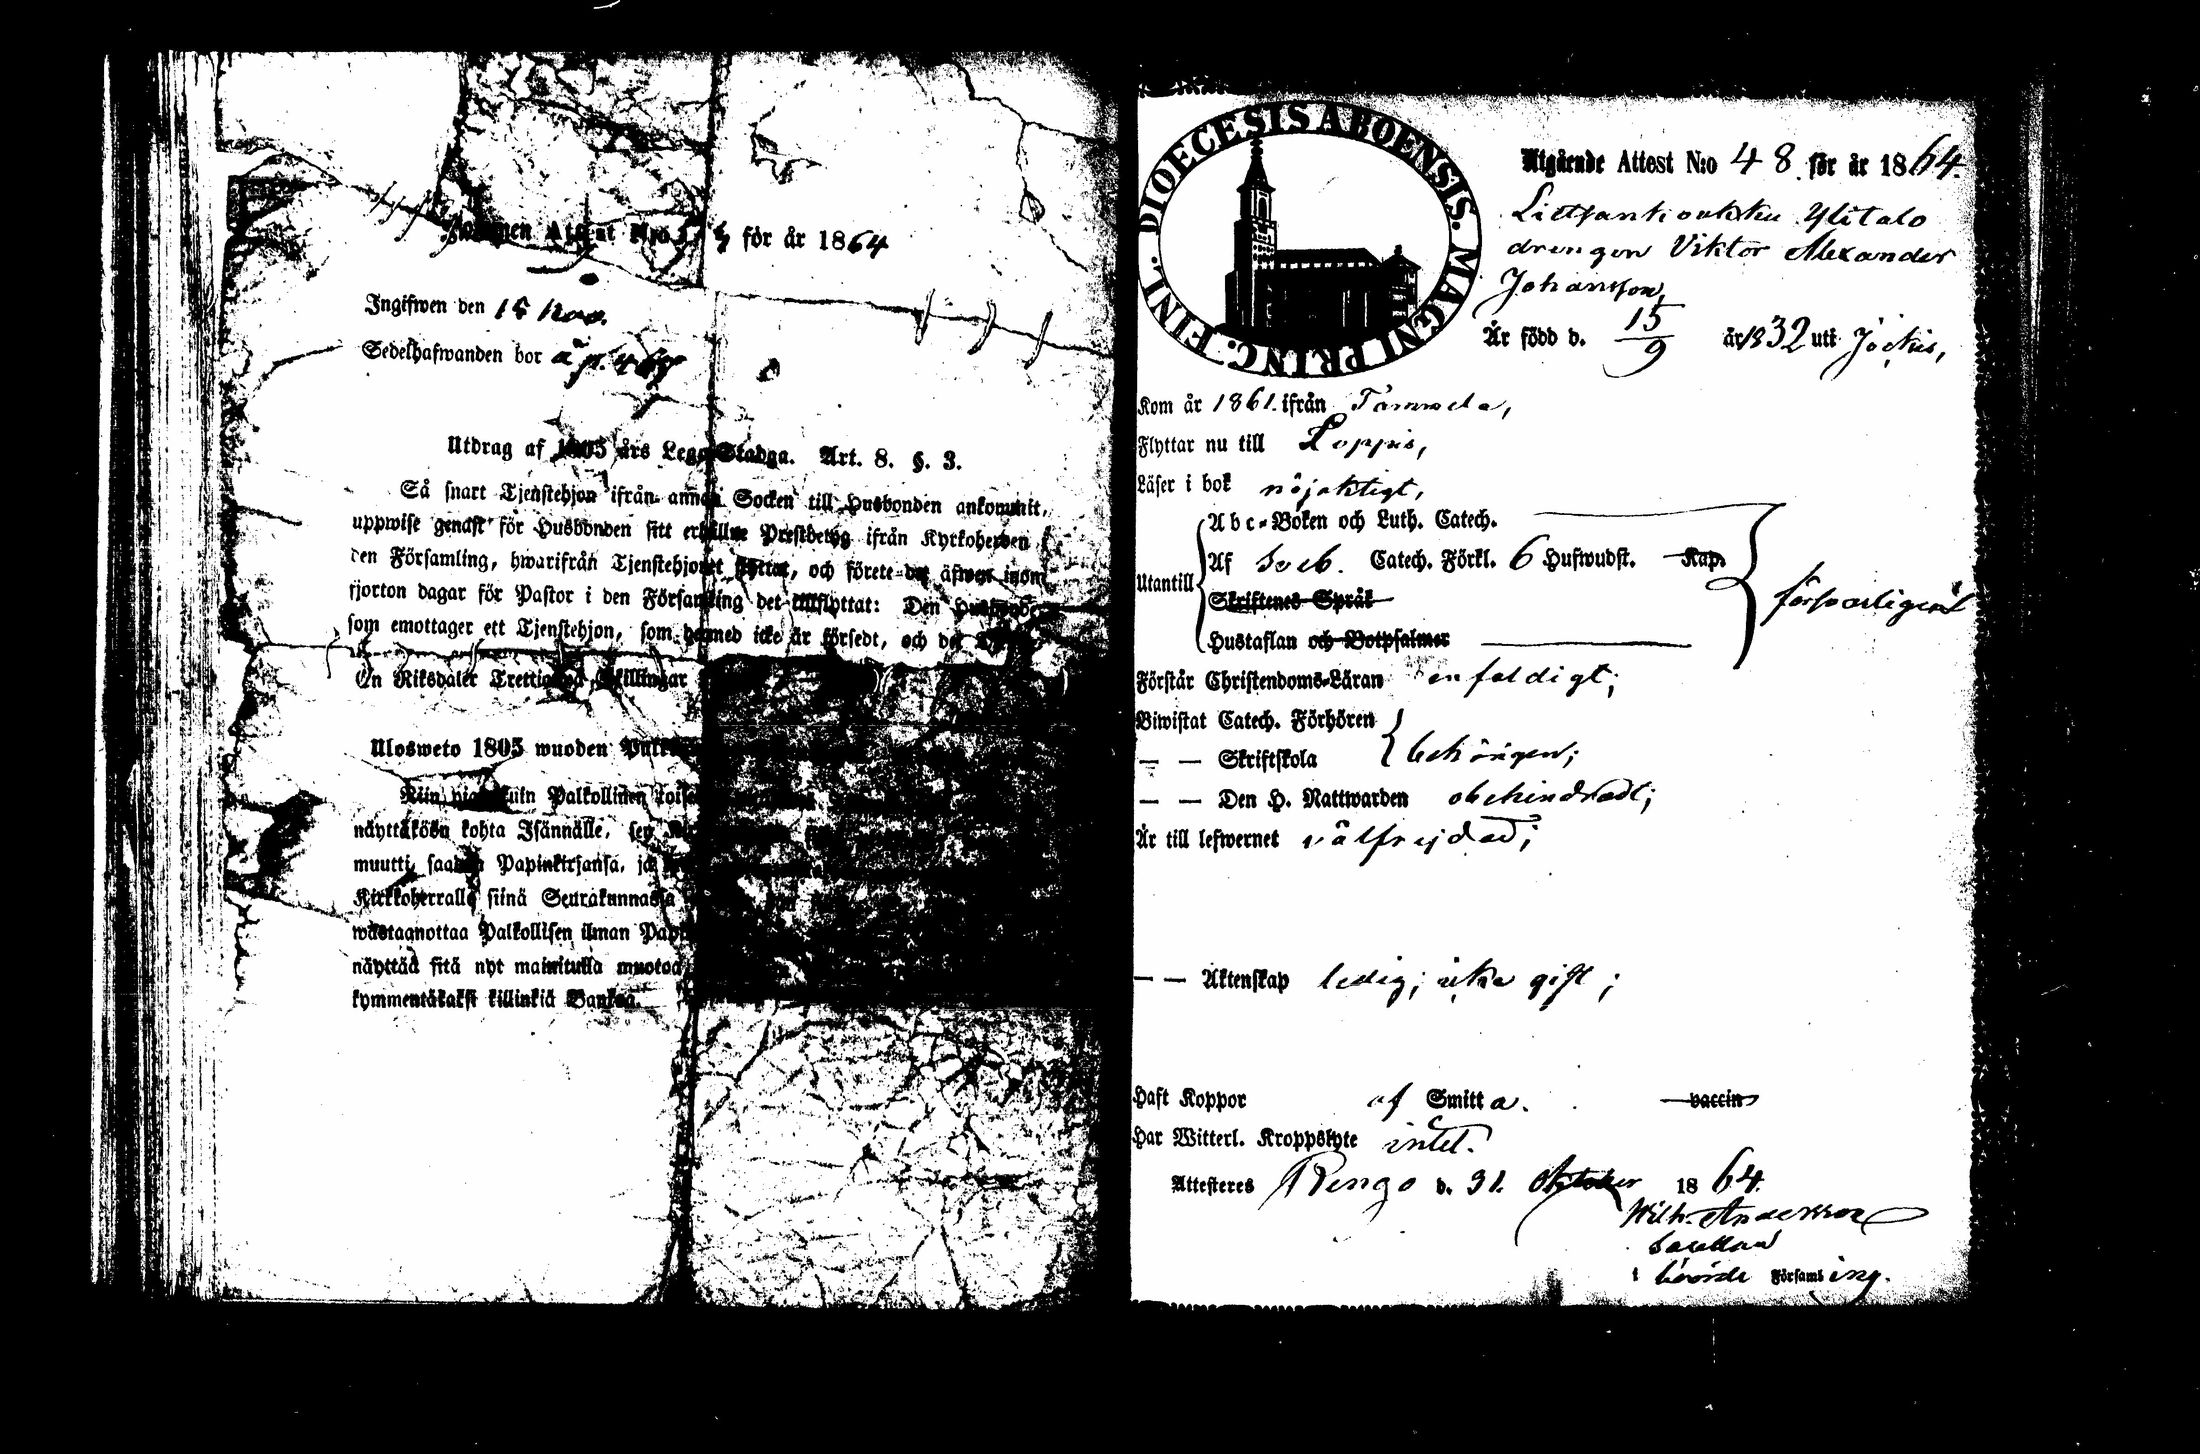 för år 1864
Ingifwen den 15 Nov.
Sedelhafwanden bor å
Utdrag af 1805 års Lego-Stadga. Art. 8. §. 3.
Så snart Tjenstehjon ifrån annan Socken till Husbonden ankommit,
uppwise genast för Husbonden sitt erhållne Prestbetyg ifrån Kyrkoherden i
den Församling, hwarifrån Tjenstehjonet flyttat, och förete det äfwen inom
fjorton dagar för Pastor i den Församling det tillflyttat: Den
som emottager ett Tjenstehjon, som dermed icke är försedt, och det
En Riksdaler Trettiotwå Skillingar
Ulosweto 1805 wuoden
Niin pian kuin Palkollinen
näyttäkön kohta Isännälle, sen
muutti, saadun Papinkirjansa, ja
Kirkkoherralle siinä Seurakunnassa
wastaanottaa Palkollisen ilman
näyttää sitä nyt mainitulla muotoa
kymmentäkaksi killinkiä Bankoa.
DIOECESIS ABOENSIS. MAGNI PRINC. FINL.
Utgående Attest N:o 48 för år 1864.
Ylitalo
drengen Viktor Alexander
Johansson,
Är född d. 15/9 år 1832 uti Jockis,
Kom år 1861. ifrån Tammela,
Flyttar nu till Loppis,
Läser i bok nöjaktigt,
Abc-Boken och Luth. Catech.
Utantill Af Sveb. Catech. Förkl. 6 Hufwudst. Kap. försvarligent
Skriftenes Språk
Hustaflan och Botpsalmer
Förstår Christendoms-Läran enfaldigt;
Biwistat Catech. Förhören
— — Skriftskola behörigen;
— — Den H. Nattwarden obehindradt;
Är till lefwernet välfrejdad;
— — Äktenskap ledig; icke gift;
Haft Koppor af Smitta. vaccin
Har Witterl. Kroppslyte intet.
Attesteres Rengo d. 31. Oktober 1864.
Wilh. Andersson
i Församling.